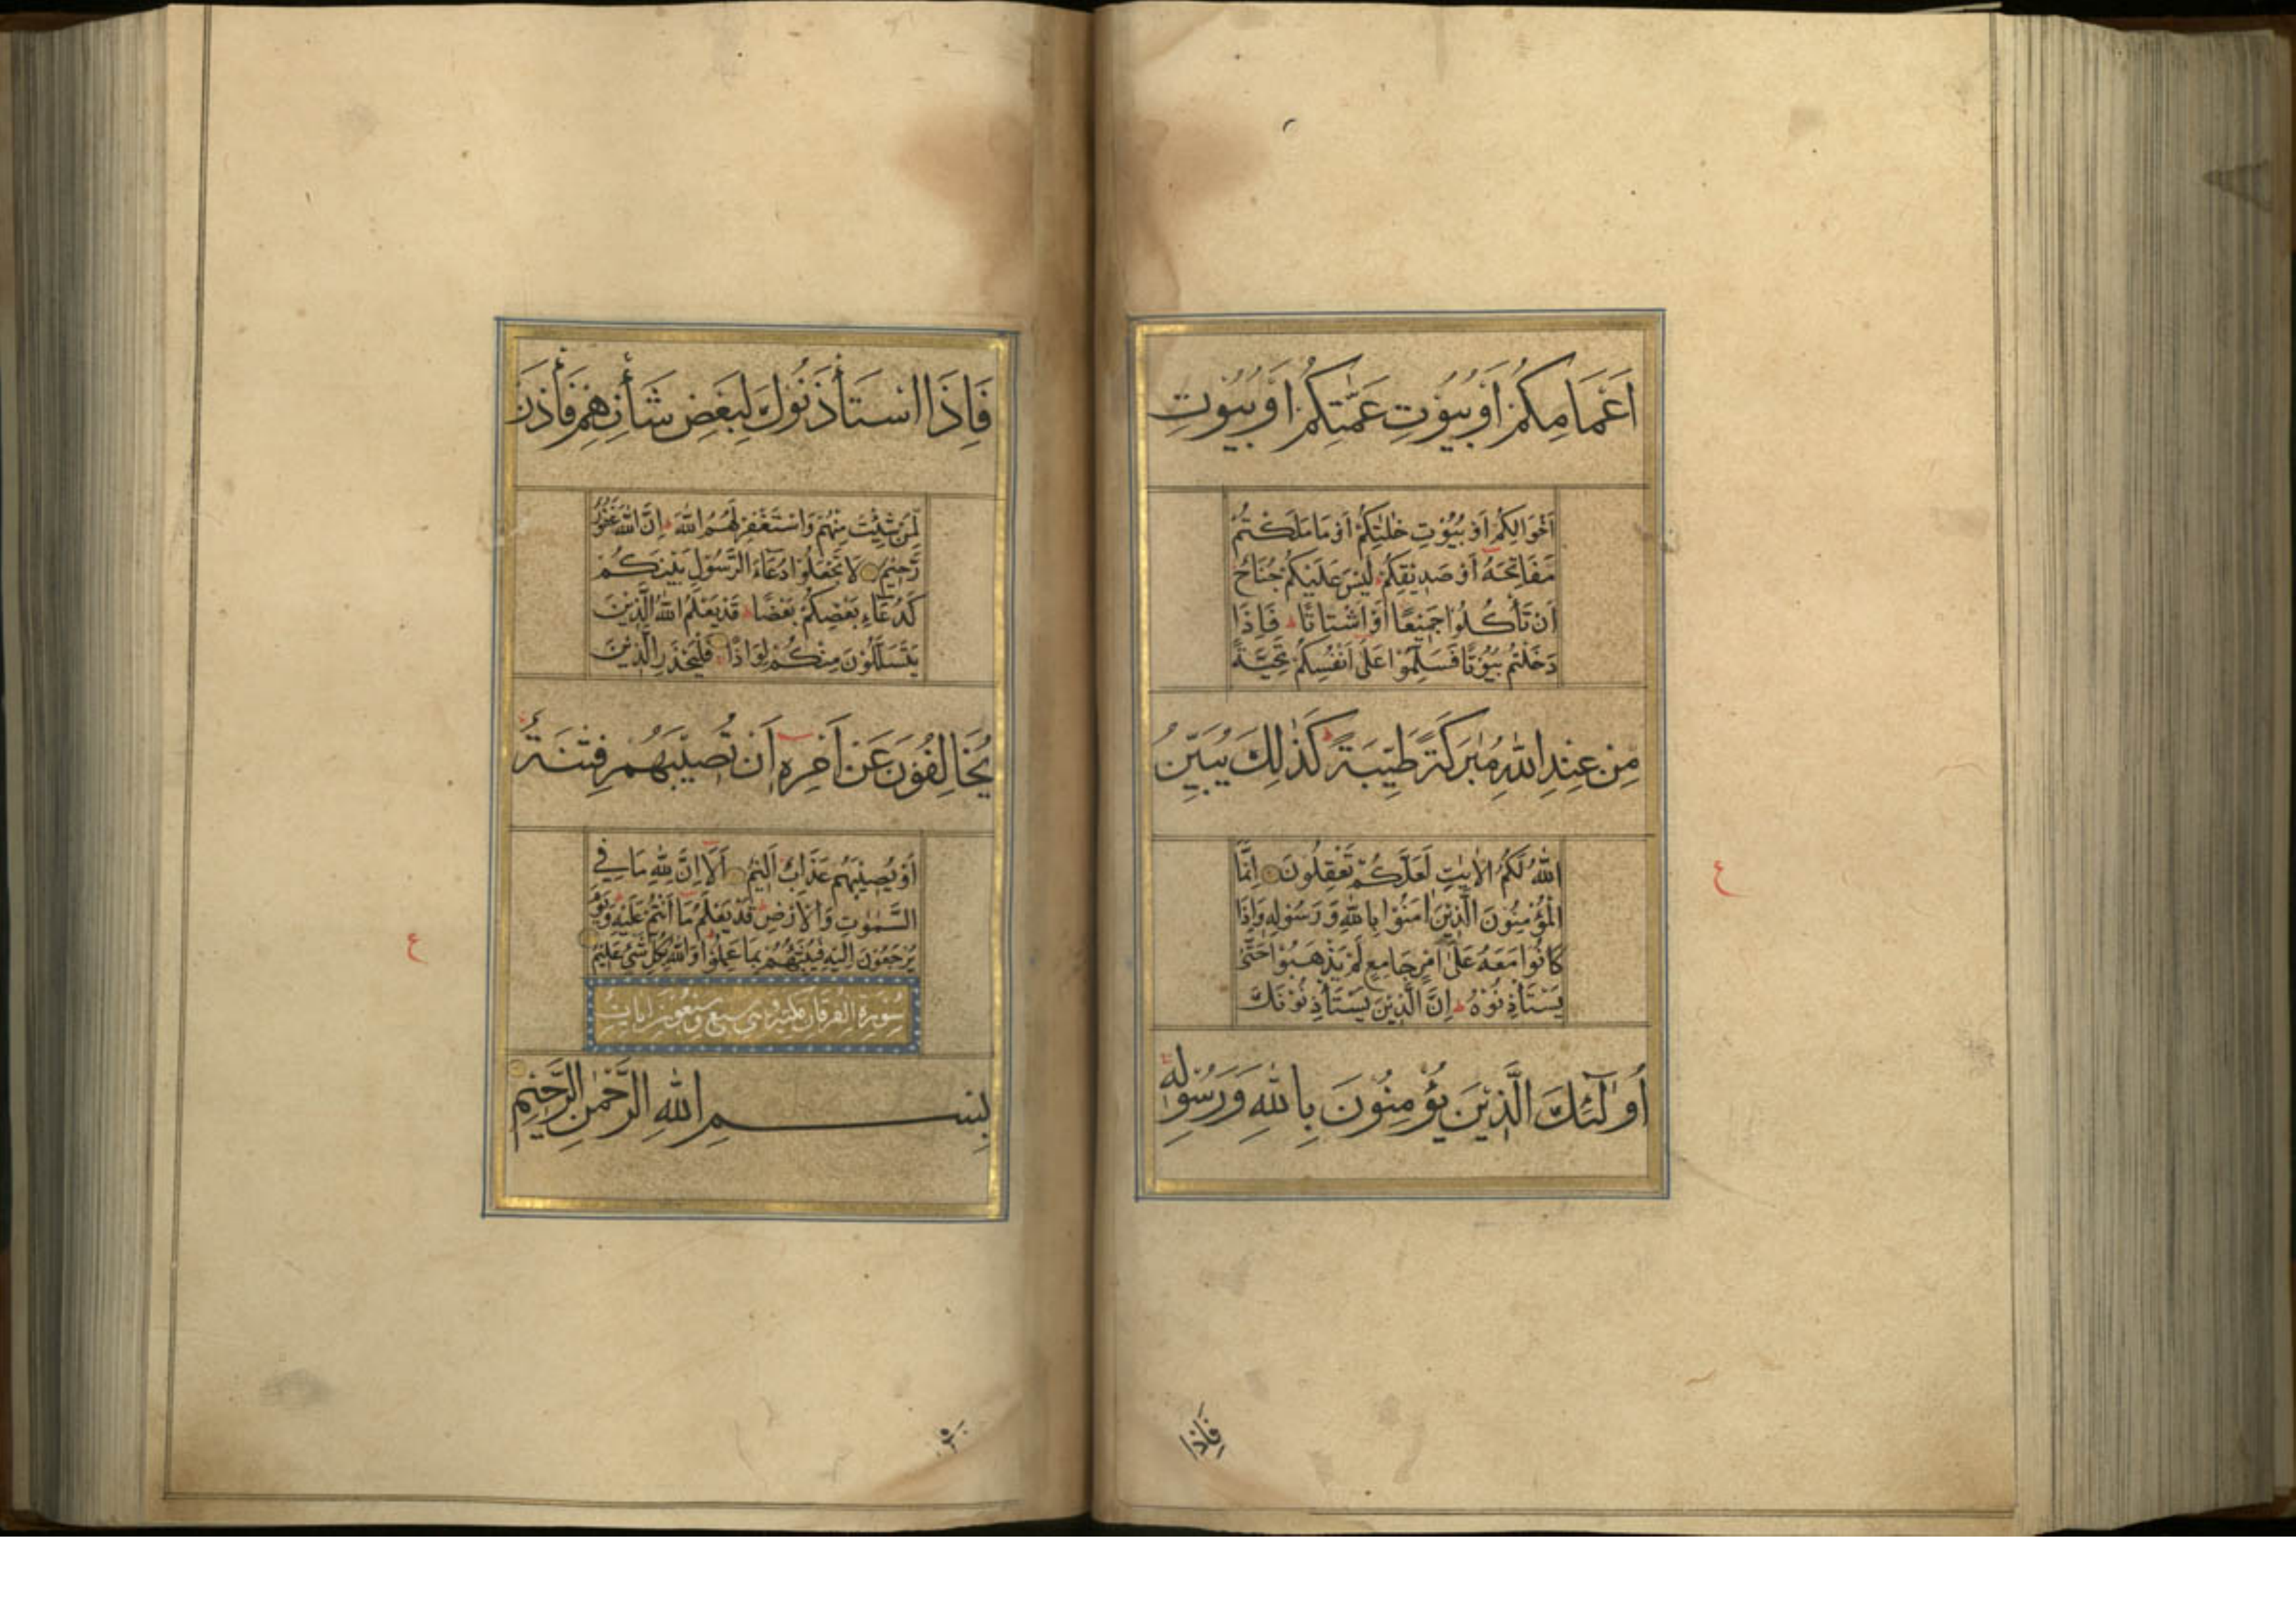 اَعْمَامِكُمْ اَوْ بُيُوْتِ عَمّٰتِكُمْ اَوْ بُيُوْتِ
اَخْوَالِكُمْ اَوْ بُيُوْتِ خٰلٰتِكُمْ اَوْ مَا مَلَكْتُمْ
مَفَاتِحَهُ اَوْ صَدِيْقِكُمْ ط لَيْسَ عَلَيْكُمْ جُنَاحٌ
اَنْ تَأْكُلُوْا جَمِيْعًا اَوْ اَشْتَاتًا ط فَاِذَا
دَخَلْتُمْ بُيُوْتًا فَسَلِّمُوْا عَلٰى اَنْفُسِكُمْ تَحِيَّةً
مِنْ عِنْدِ اللّٰهِ مُبٰرَكَةً طَيِّبَةً ط كَذٰلِكَ يُبَيِّنُ
اللّٰهُ لَكُمُ الْاٰيٰتِ لَعَلَّكُمْ تَعْقِلُوْنَ اِنَّمَا
الْمُؤْمِنُوْنَ الَّذِيْنَ اٰمَنُوْا بِاللّٰهِ وَرَسُوْلِهٖ وَاِذَا
كَانُوْا مَعَهُ عَلٰٓى اَمْرٍ جَامِعٍ لَمْ يَذْهَبُوْا حَتّٰى
يَسْتَأْذِنُوْهُ ط اِنَّ الَّذِيْنَ يَسْتَأْذِنُوْنَكَ
اُولٰٓئِكَ الَّذِيْنَ يُؤْمِنُوْنَ بِاللّٰهِ وَرَسُوْلِهٖ
ع
فَاِذَا
فَاِذَا اسْتَأْذَنُوْكَ لِبَعْضِ شَأْنِهِمْ فَأْذَنْ
لِّمَنْ شِئْتَ مِنْهُمْ وَاسْتَغْفِرْ لَهُمُ اللّٰهَ ط اِنَّ اللّٰهَ غَفُوْرٌ
رَّحِيْمٌ لَا تَجْعَلُوْا دُعَآءَ الرَّسُوْلِ بَيْنَكُمْ
كَدُعَآءِ بَعْضِكُمْ بَعْضًا ط قَدْ يَعْلَمُ اللّٰهُ الَّذِيْنَ
يَتَسَلَّلُوْنَ مِنْكُمْ لِوَاذًا فَلْيَحْذَرِ الَّذِيْنَ
يُخَالِفُوْنَ عَنْ اَمْرِهٖ اَنْ تُصِيْبَهُمْ فِتْنَةٌ
اَوْ يُصِيْبَهُمْ عَذَابٌ اَلِيْمٌ اَلَا اِنَّ لِلّٰهِ مَا فِي
السَّمٰوٰتِ وَالْاَرْضِ ط قَدْ يَعْلَمُ مَا اَنْتُمْ عَلَيْهِ ط وَيَوْمَ
يُرْجَعُوْنَ اِلَيْهِ فَيُنَبِّئُهُمْ بِمَا عَمِلُوْا ط وَاللّٰهُ بِكُلِّ شَيْءٍ عَلِيْمٌ
سُوْرَةُ الفُرقَان مَكِّيَّة وَهِيَ سبع وسَبعُونَ اٰيات
بِسْمِ اللّٰهِ الرَّحْمٰنِ الرَّحِيْمِ
ع